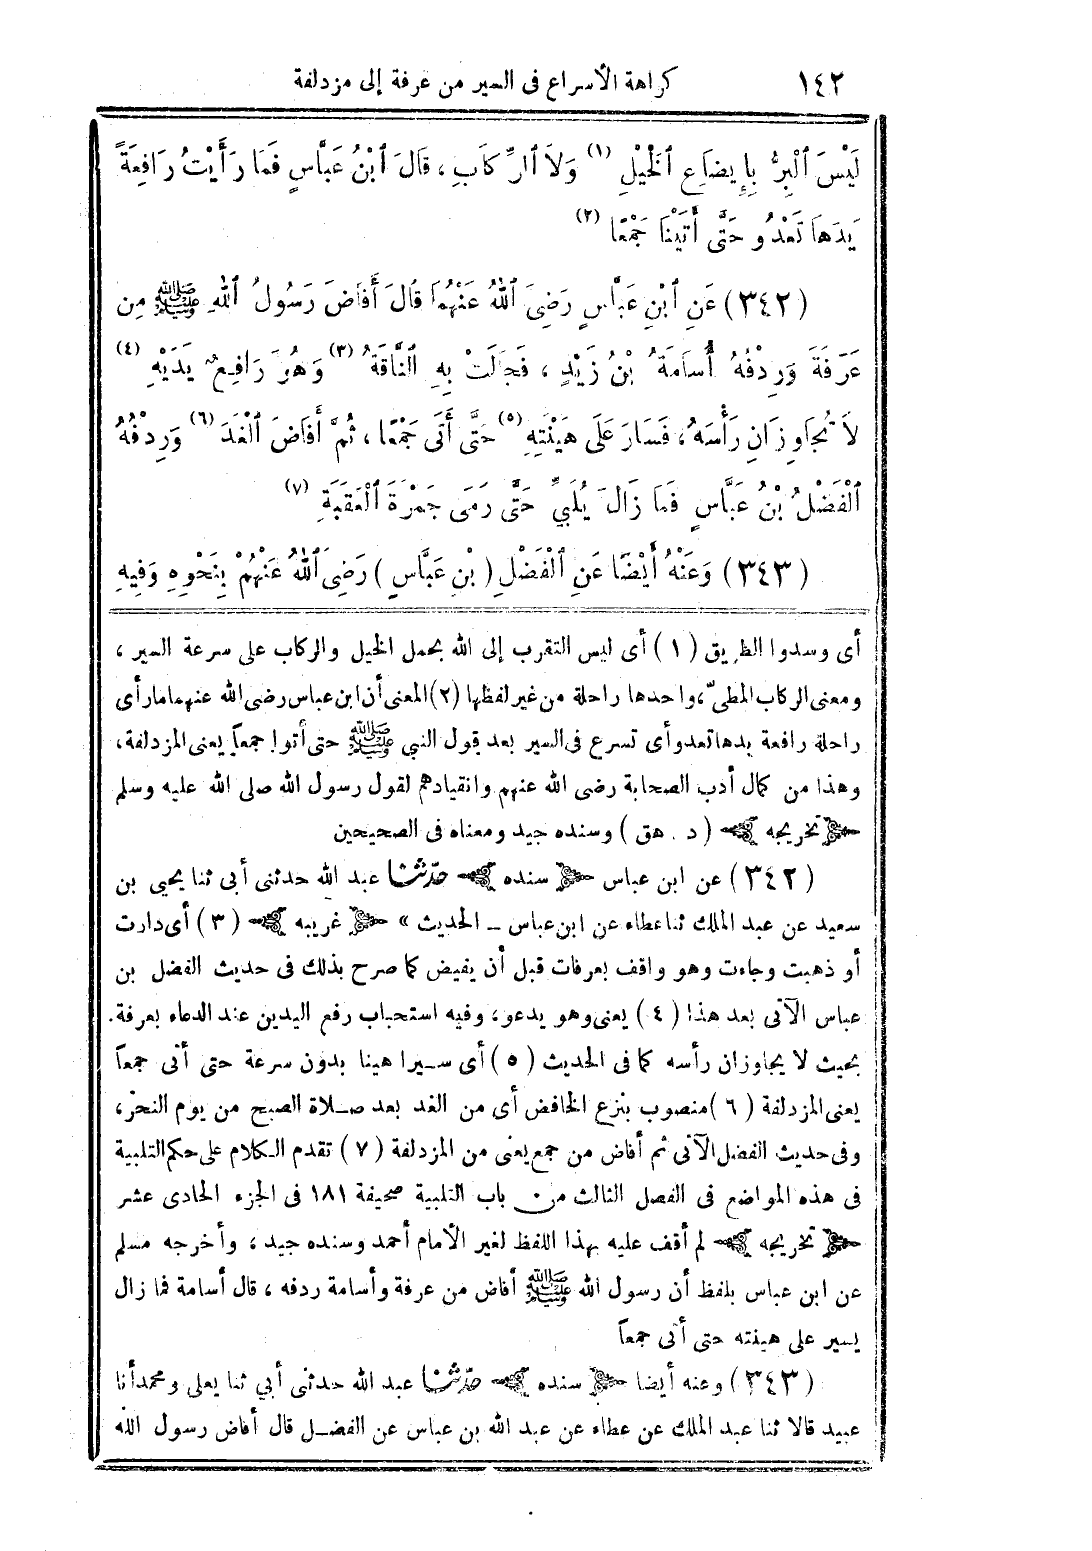 ١٤٢ كراهة الأسراع فى السير من عرفة إلى مزدلفة
لَيْسَ ٱلْبِرُّ بِإِيضَاعِ ٱلْخَيْلِ (١) وَلَا ٱلرِّكَابِ، قَالَ ٱبْنُ عَبَّاسٍ فَمَا رَأَيْتُ رَافِعَةً
يَدَهَا تَعْدُو حَتَّى أَتَيْنَا جَمْعًا (٢)
(٣٤٢) عَنِ ٱبْنِ عَبَّاسٍ رَضِىَ ٱللهُ عَنْهُمَا قَالَ أَفَاضَ رَسُولُ ٱللهِ ﷺ مِن
عَرَفَةَ وَرِدْفُهُ أُسَامَةُ بْنُ زَيْدٍ ، فَجَالَتْ بِهِ ٱلنَّاقَةُ (٣) وَهُوَ رَافِعٌ يَدَيْهِ (٤)
لَا تُجَاوِزَانِ رَأْسَهُ، فَسَارَ عَلَى هَيْنَتِهِ (٥) حَتَّى أَتَى جَمْعًا ، ثُمَّ أَفَاضَ ٱلْغَدَ (٦) وَرِدْفُهُ
ٱلْفَضْلُ بْنُ عَبَّاسٍ فَمَا زَالَ يُلَبِّى حَتَّى رَمَى جَمْرَةَ ٱلْعَقَبَةِ (٧)
(٣٤٣) وَعَنْهُ أَيْضًا عَنِ ٱلْفَضْلِ (بْنِ عَبَّاسٍ) رَضِىَ ٱللهُ عَنْهُمْ بِنَحْوِهِ وَفِيهِ
أى وسدوا الطريق (١) أى ليس التقرب إلى الله بحمل الخيل والركاب على سرعة السير ،
ومعنى الركاب المطىّ، واحدها راحلة من غير لفظها (٢) المعنى أن ابن عباس رضى الله عنهما ما رأى
راحلة رافعة يدها تعدو أى تسرع فى السير بعد قول النبى ﷺ حتى أتوا جمعاً يعنى المزدلفة،
وهذا من كمال أدب الصحابة رضى الله عنهم وانقيادهم لقول رسول الله صلى الله عليه وسلم
﴿ تخريجه ﴾ (د . هق) وسنده جيد ومعناه فى الصحيحين
(٣٤٢) عن ابن عباس ﴿ سنده ﴾ حدّثنا عبد الله حدثنى أبى ثنا يحيى بن
سعيد عن عبد الملك ثنا عطاء عن ابن عباس ــ الحديث » ﴿ غريبه ﴾ (٣) أى دارت
أو ذهبت وجاءت وهو واقف بعرفات قبل أن يفيض كما صرح بذلك فى حديث الفضل بن
عباس الآتى بعد هذا (٤) يعنى وهو يدعو، وفيه استحباب رفع اليدين عند الدعاء بعرفة.
بحيث لا يجاوزان رأسه كما فى الحديث (٥) أى سـيرا هينا بدون سرعة حتى أتى جمعاً
يعنى المزدلفة (٦) منصوب بنزع الخافض أى من الغد بعد صـلاة الصبح من يوم النحر،
وفى حديث الفضل الآتى ثم أفاض من جمع يعنى من المزدلفة (٧) تقدم الـكلام على حكم التلبية
فى هذه المواضع فى الفصل الثالث من باب التلبية صحيفة ١٨١ فى الجزء الحادى عشر
﴿ تخريجه ﴾ لم أقف عليه بهذا اللفظ لغير الأمام أحمد وسنده جيد ، وأخرجه مسلم
عن ابن عباس بلفظ أن رسول الله ﷺ أفاض من عرفة وأسامة ردفه ، قال أسامة فما زال
يسير على هينته حتى أتى جمعاً
(٣٤٣) وعنه أيضا ﴿ سنده ﴾ حدّثنا عبد الله حدثنى أبي ثنا يعلى ومحمد أنا
عبيد قالا ثنا عبد الملك عن عطاء عن عبد الله بن عباس عن الفضـل قال أفاض رسول الله